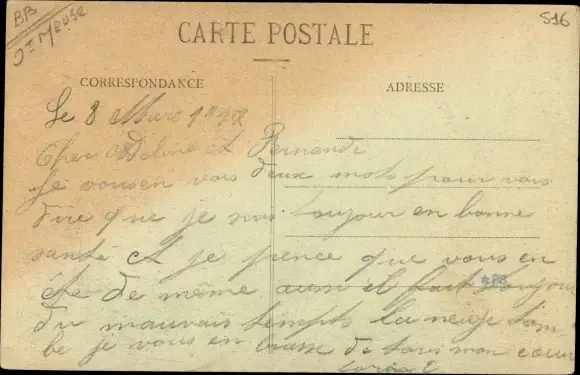 BB
Dt Meuse
S16
CARTE POSTALE
CORRESPONDANCE
ADRESSE
Le 8 Mars 1917
Cher Adeline et Fernande
Je vousen vois deux mots pour vous
dire que je suis toujour en bonne
santé et je pence que vous en
ete de même aussi il fait toujour
du mauvais temps la neige tom
be je vous en brasse de tous mon coeur